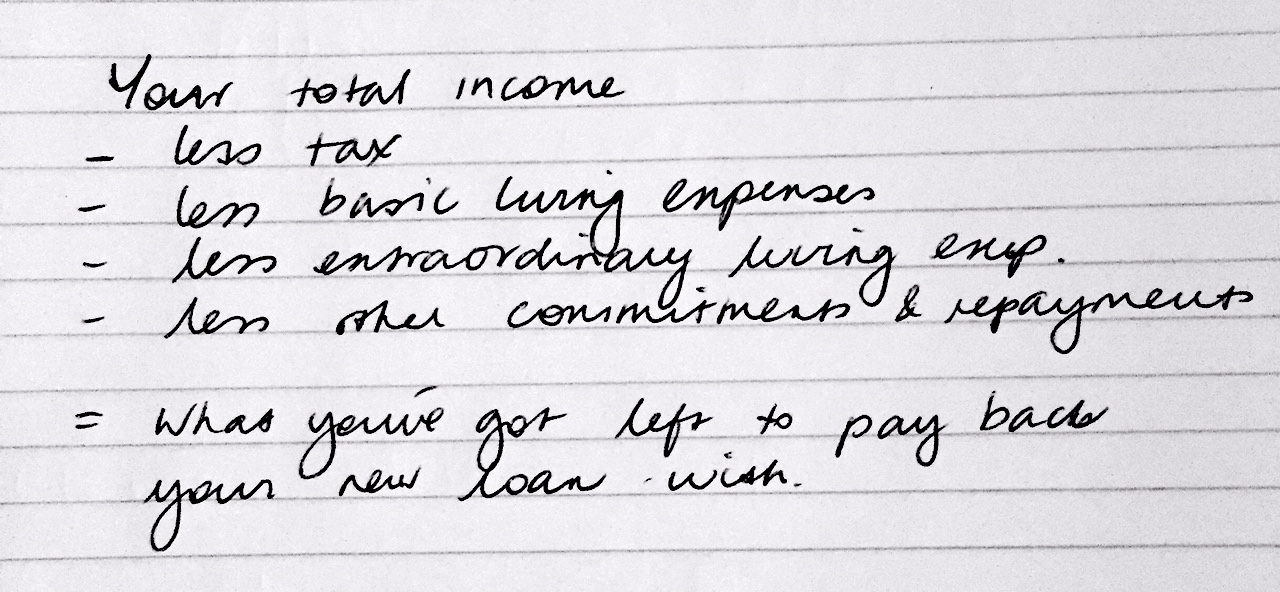 Your total income
- less tax
- less basic living expenses
- less extraordinary living exp.
- less other commitments & repayments
= What you've got left to pay back
your new loan with.